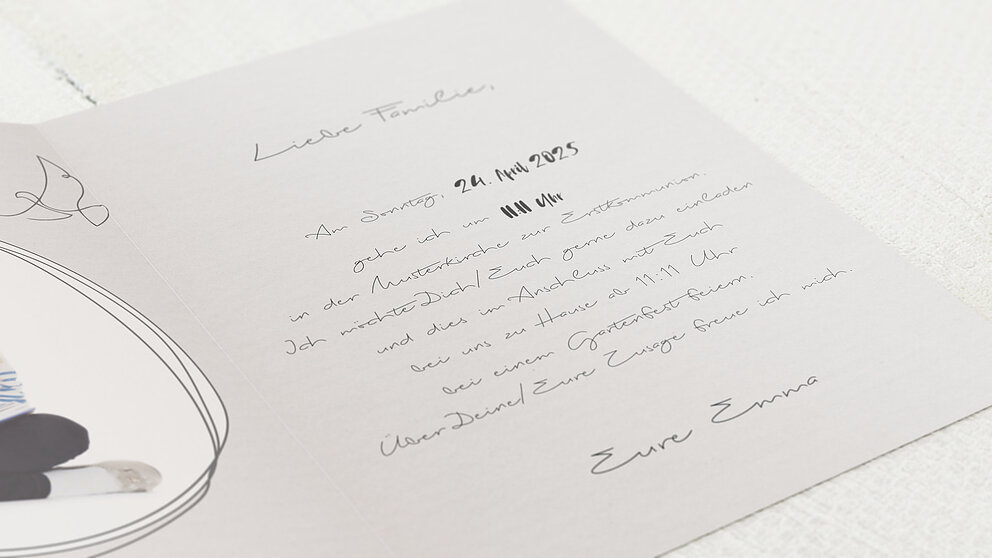 Liebe Familie,
Am Sonntag, 24. April 2025
gehe ich um 11.11 Uhr
in der Musterkirche zur Erstkommunion.
Ich möchte Dich/Euch gerne dazu einladen
und dies im Anschluss mit Euch
bei uns zu Hause ab 11:11 Uhr
bei einem Gartenfest feiern.
Über Deine/Eure Zusage freue ich mich.
Eure Emma